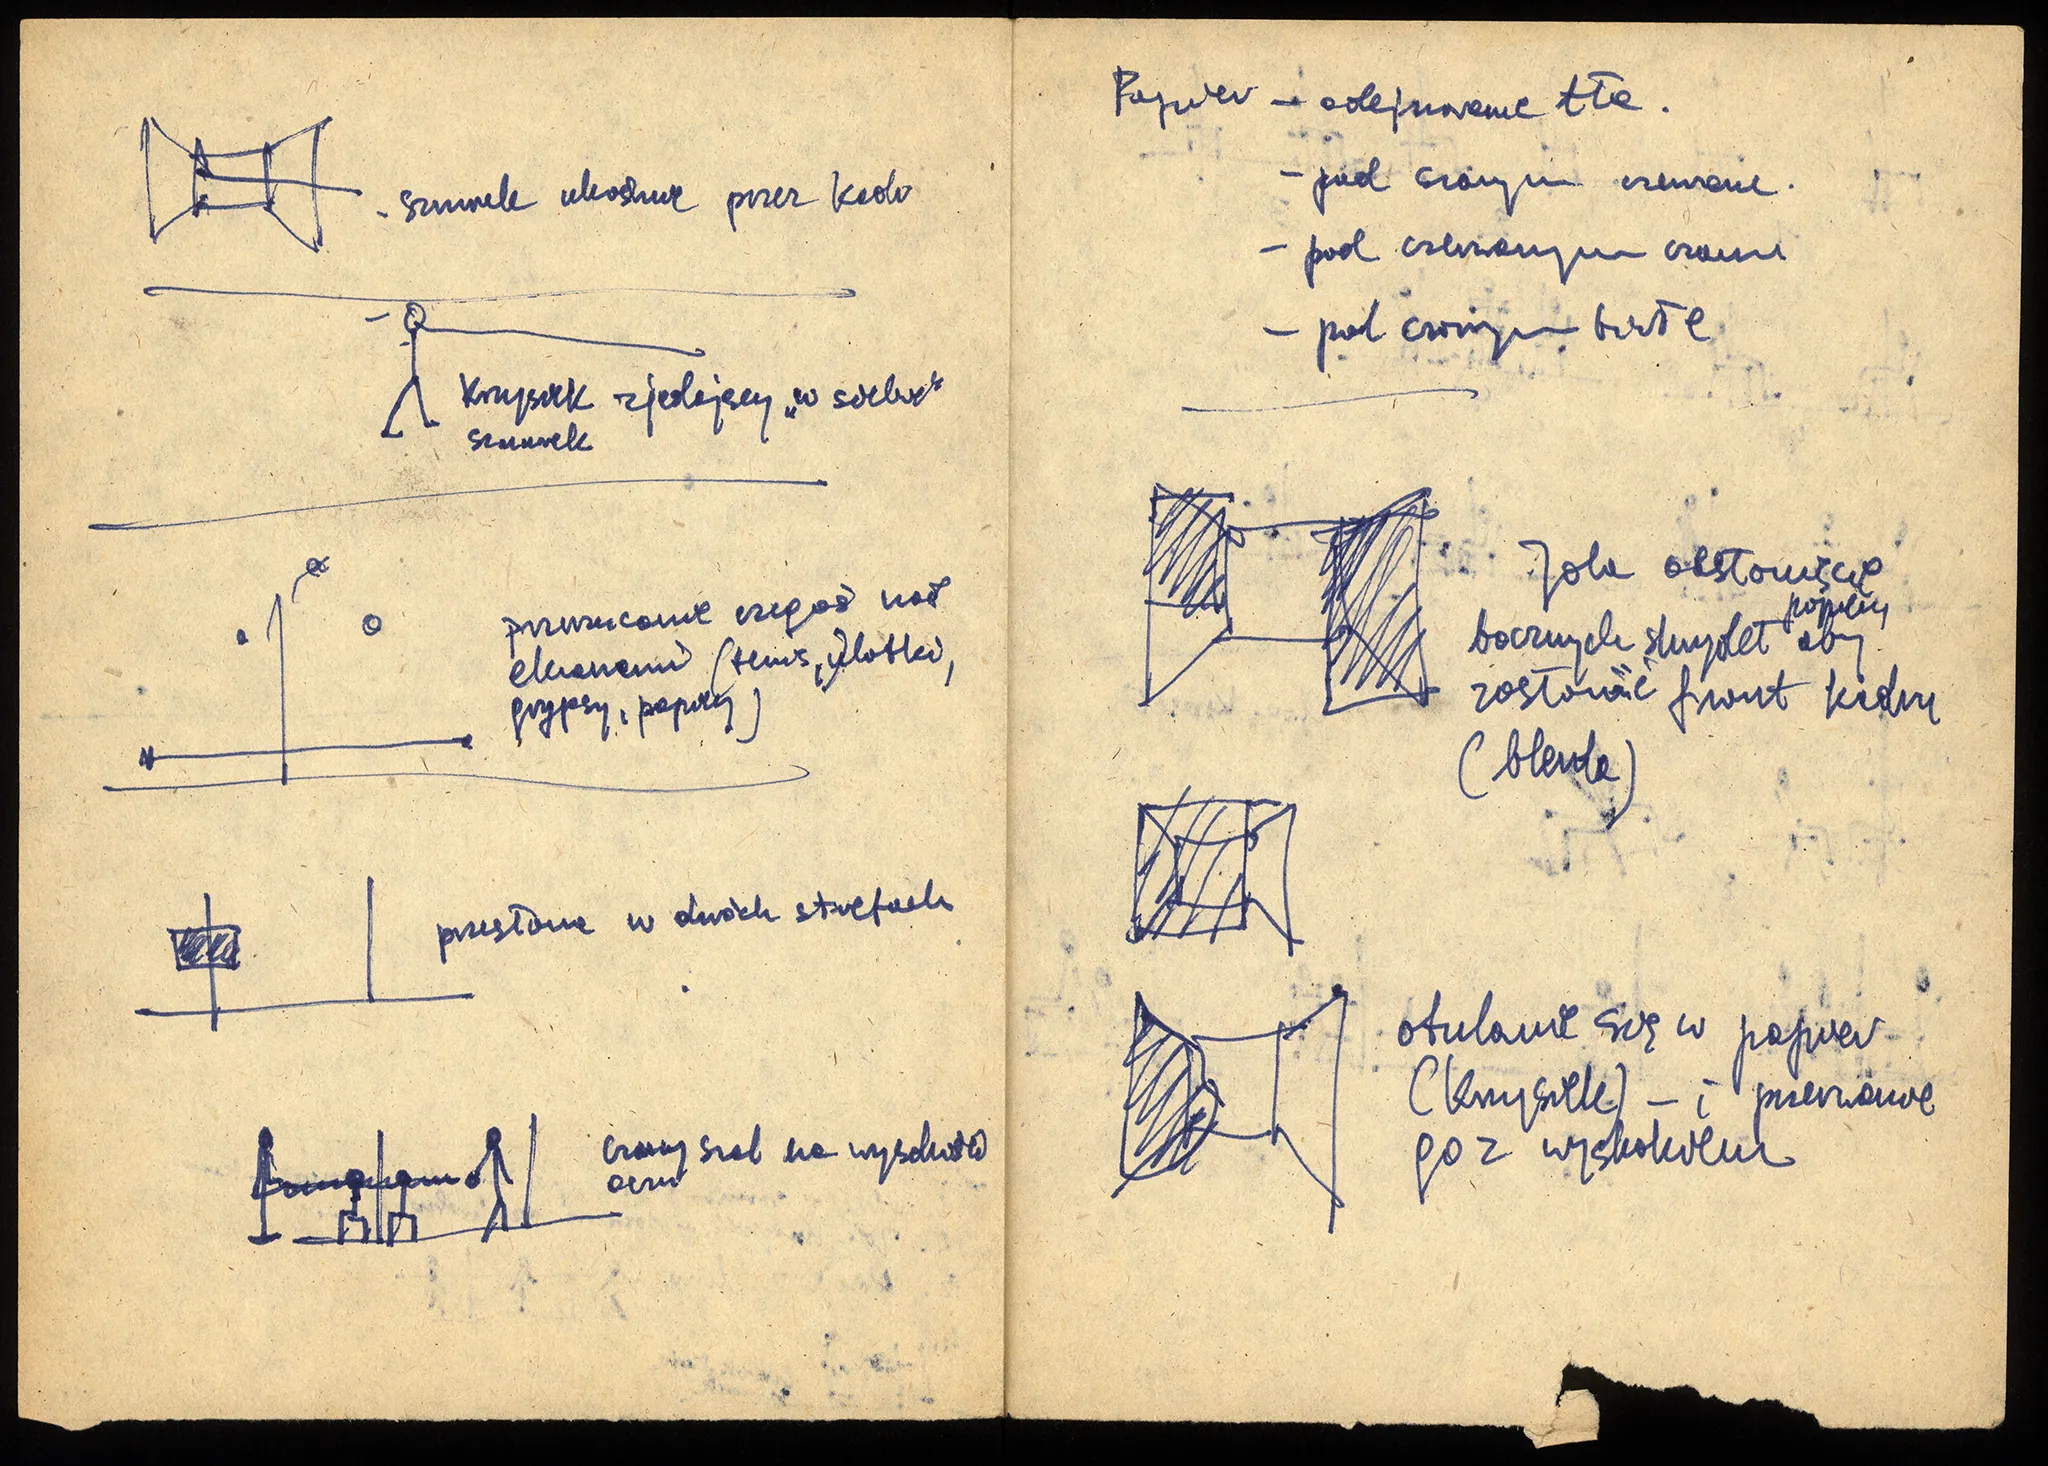 - sznurek ukośnie przez kadr
Krzysiek zjedający „w siebie”
sznurek
przerzucanie czegoś nad
ekranami (tenis, ulotki,
grypsy, papiery)
przesłona w dwóch strefach
czarny szal na wysokości
oczu
Papier - odejmowanie tła.
- pod czarnym czerwone.
- pod czerwonym czarne
- pod czarnym białe
Jola obsłonięcie
papierem
bocznych skrzydeł aby
zasłonić front kadru
(blenda)
otulanie się w papier
(Krzysiek) - i przerwanie
go z wyskokiem